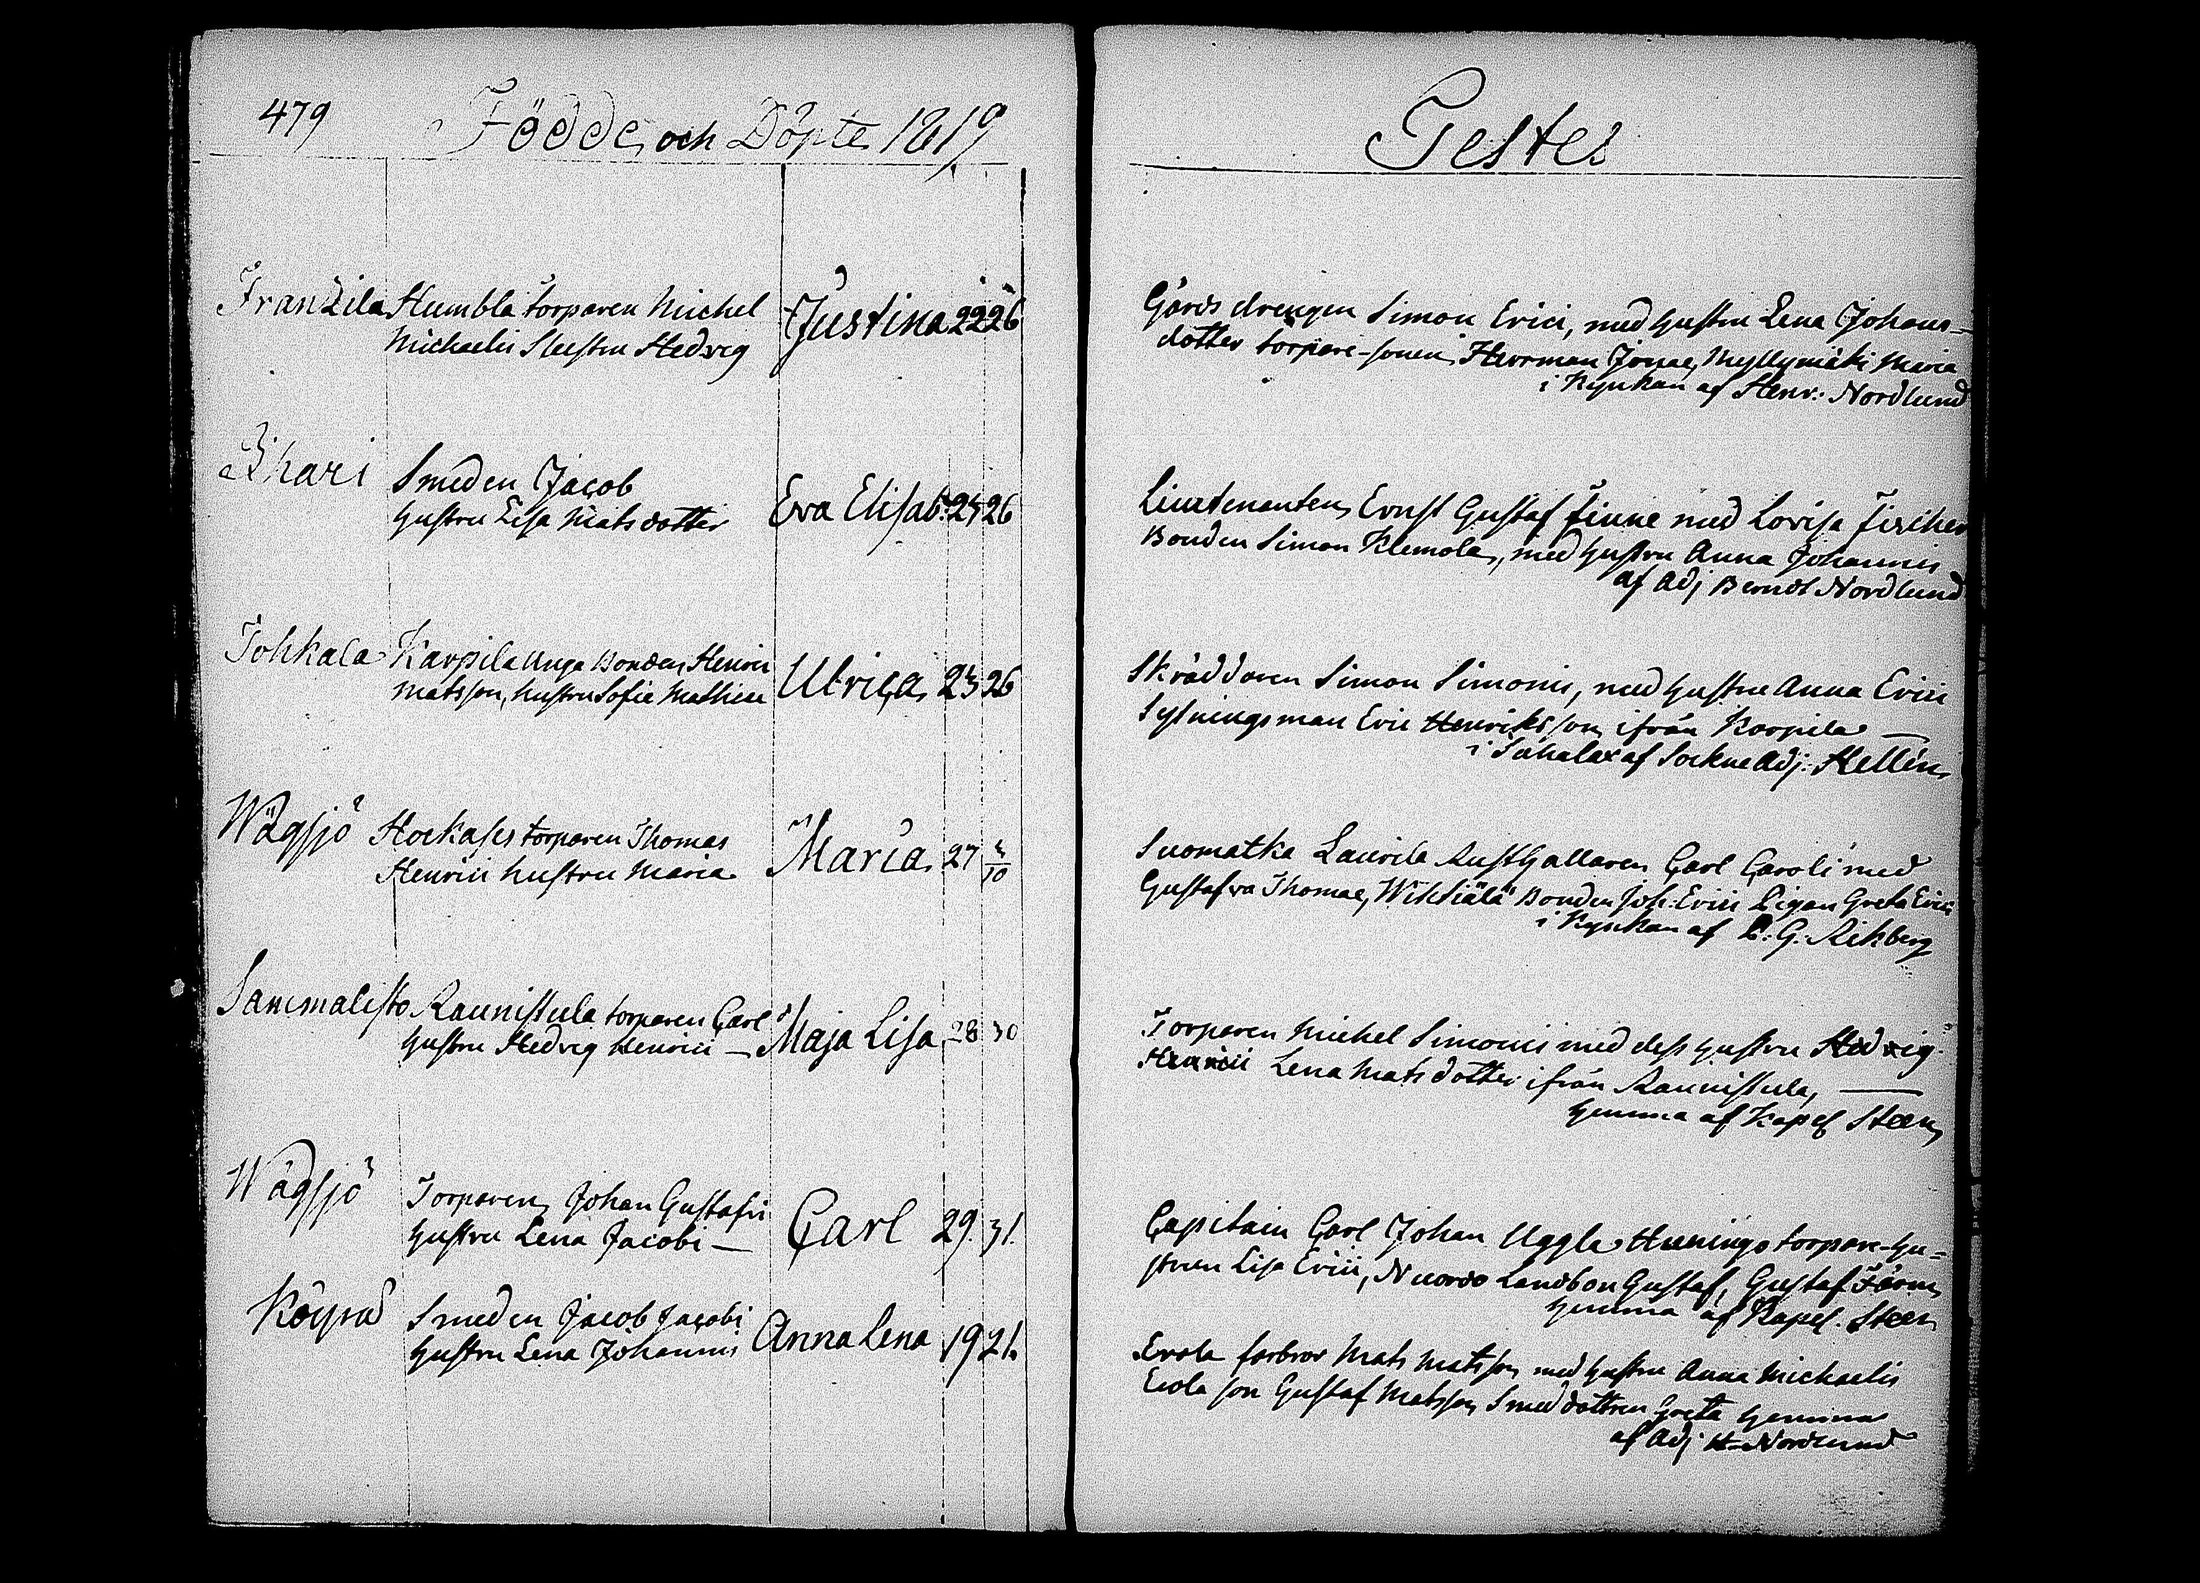 479 Födde och Döpte 1819
Testes
Franzila Humbla torparen Michel Justina 22 26
Michaelis Hustru Hedvig
Gårds drengen Simon Erici, med hustru Lena Johans-
dotter torpare-sonen Herrman Jonae, Myllymäki Maria
i Kyrkan af Henr: Nordlund
Ihari Smeden Jacob
hustru Lisa Matsdotter Eva Elisab: 25 26
Lieutenanten Ernst Gustaf Finne med Lovisa Fischer
Bonden Simon Klemola, med hustru Anna Johannis
af Adj Berndt Nordlund
Tohkala Karpila unga Bonden Henric Ulrica 23 26
Matsson, hustru Sofie Mathiae
Skräddaren Simon Simonis, med hustru Anna Erici
Sytningsman Eric Henriksson ifrån Korpila —
i Sahalax af Sockne Adj: Hellén
Wägsjö Hockases torparen Thomas Maria 27 3/10
Henrici hustru Maria
Suomatka Laurila Rusthållaren Carl Caroli med
Gustafva Thomae, Wihtiälä Bonden Joh: Erici Pigan Greta Erici
i Kyrkan af L: G: Rikberg
Sammalisto Raunistula torparen Carl Maja Lisa 28 30
hustru Hedvig Henrici —
Torparen Michel Simonis med dess hustru Hedvig
Henrici Lena Matsdotter ifrån Raunistula, —
hemma af Kapel Steen
Wägsjö Torparen Johan Gustafvi Carl 29. 31.
hustru Lena Jacobi —
Capitain Carl Johan Uggla Hunings torpare-hu-
strun Lisa Erici, Nuoro Landbon Gustaf, Gustaf Färm
hemma af Kapel. Steen
Köyrä Smeden Jacob Jacobi Anna Lena 19 21.
hustru Lena Johannis
Erola farbror Mats Matsson med hustru Anna Michaelis
Erola son Gustaf Matsson Smeddottren Greta hemma
af Adj H Nordlund